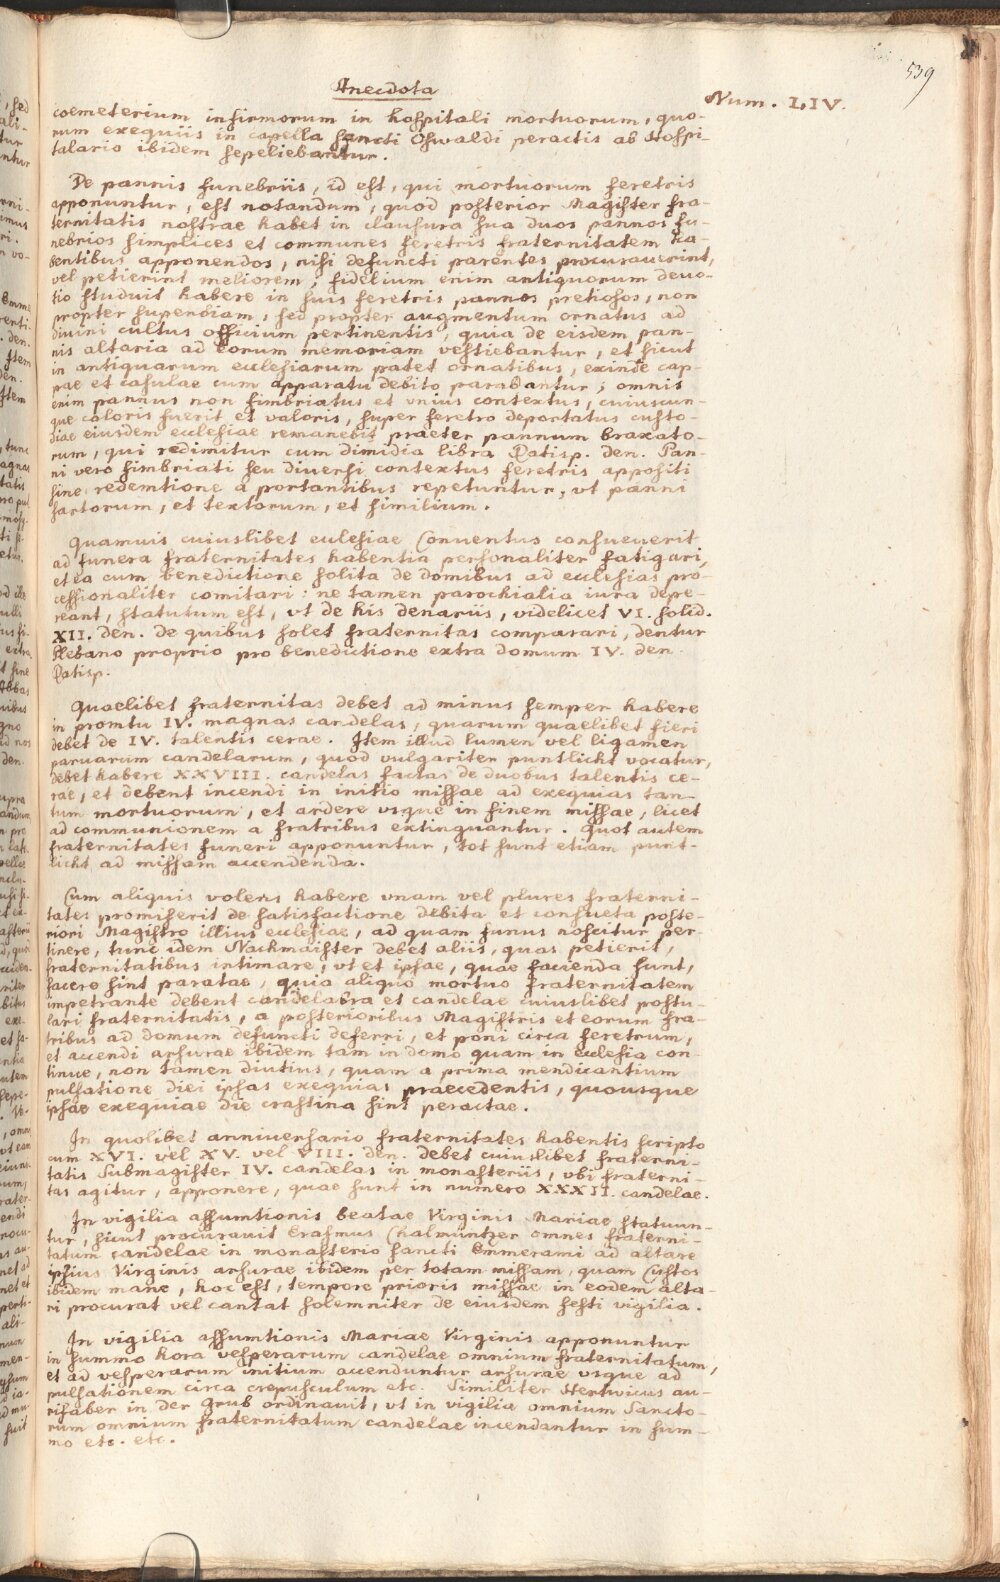 539
Anecdota
Num. LIV.
coemeterium infirmorum in hospitali mortuorum, quo-
rum exequiis in capella sancti Oswaldi peractis ab Hospi-
talario ibidem sepeliebantur.
De pannis funebriis, id est, qui mortuorum feretris
apponuntur, est notandum, quod posterior Magister fra-
ternitatis nostrae habet in clausura sua duos pannos fu-
nebrios simplices et communes feretris fraternitatem ha-
bentibus apponendos, nisi defuncti parentes procurauerint,
vel petierint meliorem; fidelium enim antiquorum deuo-
tio studuit habere in suis feretris pannos pretiosos, non
propter superbiam, sed propter augmentum ornatus ad
diuini cultus officium pertinentis, quia de eisdem pan-
nis altaria ad eorum memoriam vestiebantur, et sicut
in antiquarum ecclesiarum patet ornatibus, exinde cap-
pae et casulae cum apparatu debito parabantur; omnis
enim pannus non fimbriatus et vnius contextus, cuiuscun-
que coloris fuerit et valoris, super feretro deportatus custo-
diae eiusdem ecclesiae remanebit praeter pannum braxato-
rum, qui redimitur cum dimidia libra Ratisp. den. Pan-
ni vero fimbriati seu diuersi contextus feretris appositi
sine redemtione a portantibus repetuntur, vt panni
sartorum, et textorum, et similium.
Quamuis cuiuslibet ecclesiae Conventus consueuerit
ad funera fraternitates habentia personaliter fatigari,
et ea cum benedictione solita de domibus ad ecclesias pro-
cessionaliter comitari: ne tamen parochialia iura depe-
reant, statutum est, vt de his denariis, videlicet VI. solid.
XII. den. de quibus solet fraternitas comparari, dentur
Plebano proprio pro benedictione extra domum IV. den.
Ratisp.
Quaelibet fraternitas debet ad minus semper habere
in promtu IV. magnas candelas, quarum quaelibet fieri
debet de IV. talentis cerae. Item illud lumen vel ligamen
paruarum candelarum, quod vulgariter puntlicht vocatur,
debet habere XXVIII. candelas factas de duobus talentis ce-
rae, et debent incendi in initio missae ad exequias tan-
tum mortuorum, et ardere vsque in finem missae, licet
ad communionem a fratribus extinguantur. Quot autem
fraternitates funeri apponuntur, tot sunt etiam punt-
licht ad missam accendenda.
Cum aliquis volens habere vnam vel plures fraterni-
tates promiserit de satisfactione debita et consueta poste-
riori Magistro illius ecclesiae, ad quam funus noscitur per-
tinere, tunc idem Nachmaister debet aliis, quas petierit,
fraternitatibus intimare, vt et ipsae, quae facienda sunt,
facere sint paratae, quia aliquo mortuo fraternitatem
impetrante debent candelabra et candelae cuiuslibet postu-
lari fraternitatis, a posterioribus Magistris et eorum fra-
tribus ad domum defuncti deferri, et poni circa feretrum,
et accendi arsurae ibidem tam in domo quam in ecclesia con-
tinue, non tamen diutius, quam a prima mendicantium
pulsatione diei ipsas exequias praecedentis, quousque
ipsae exequiae die crastina sint peractae.
In quolibet anniuersario fraternitates habentis scripto
cum XVI. vel XV. vel VIII. den. debet cuiuslibet fraterni-
tatis Submagister IV. candelas in monasteriis, vbi fraterni-
tas agitur, apponere, quae sunt in numero XXXII. candelae.
In vigilia assumtionis beatae Virginis Mariae statuun-
tur, sicut procurauit Erasmus Chalmüntzer omnes fraterni-
tatum candelae in monasterio sancti Emmerami ad altare
ipsius Virginis arsurae ibidem per totam missam, quam Custos
ibidem mane, hoc est, tempore prioris missae in eodem alta-
ri procurat vel cantat solemniter de eiusdem festi vigilia.
In vigilia assumtionis Mariae Virginis apponuntur
in summo hora vesperarum candelae omnium fraternitatum,
et ad vesperarum initium accenduntur arsurae vsque ad
pulsationem circa crepusculum etc. Similiter Hertwicus au-
rifaber in der Grub ordinauit, vt in vigilia omnium Sancto-
rum omnium fraternitatum candelae incendantur in sum-
mo etc. etc.